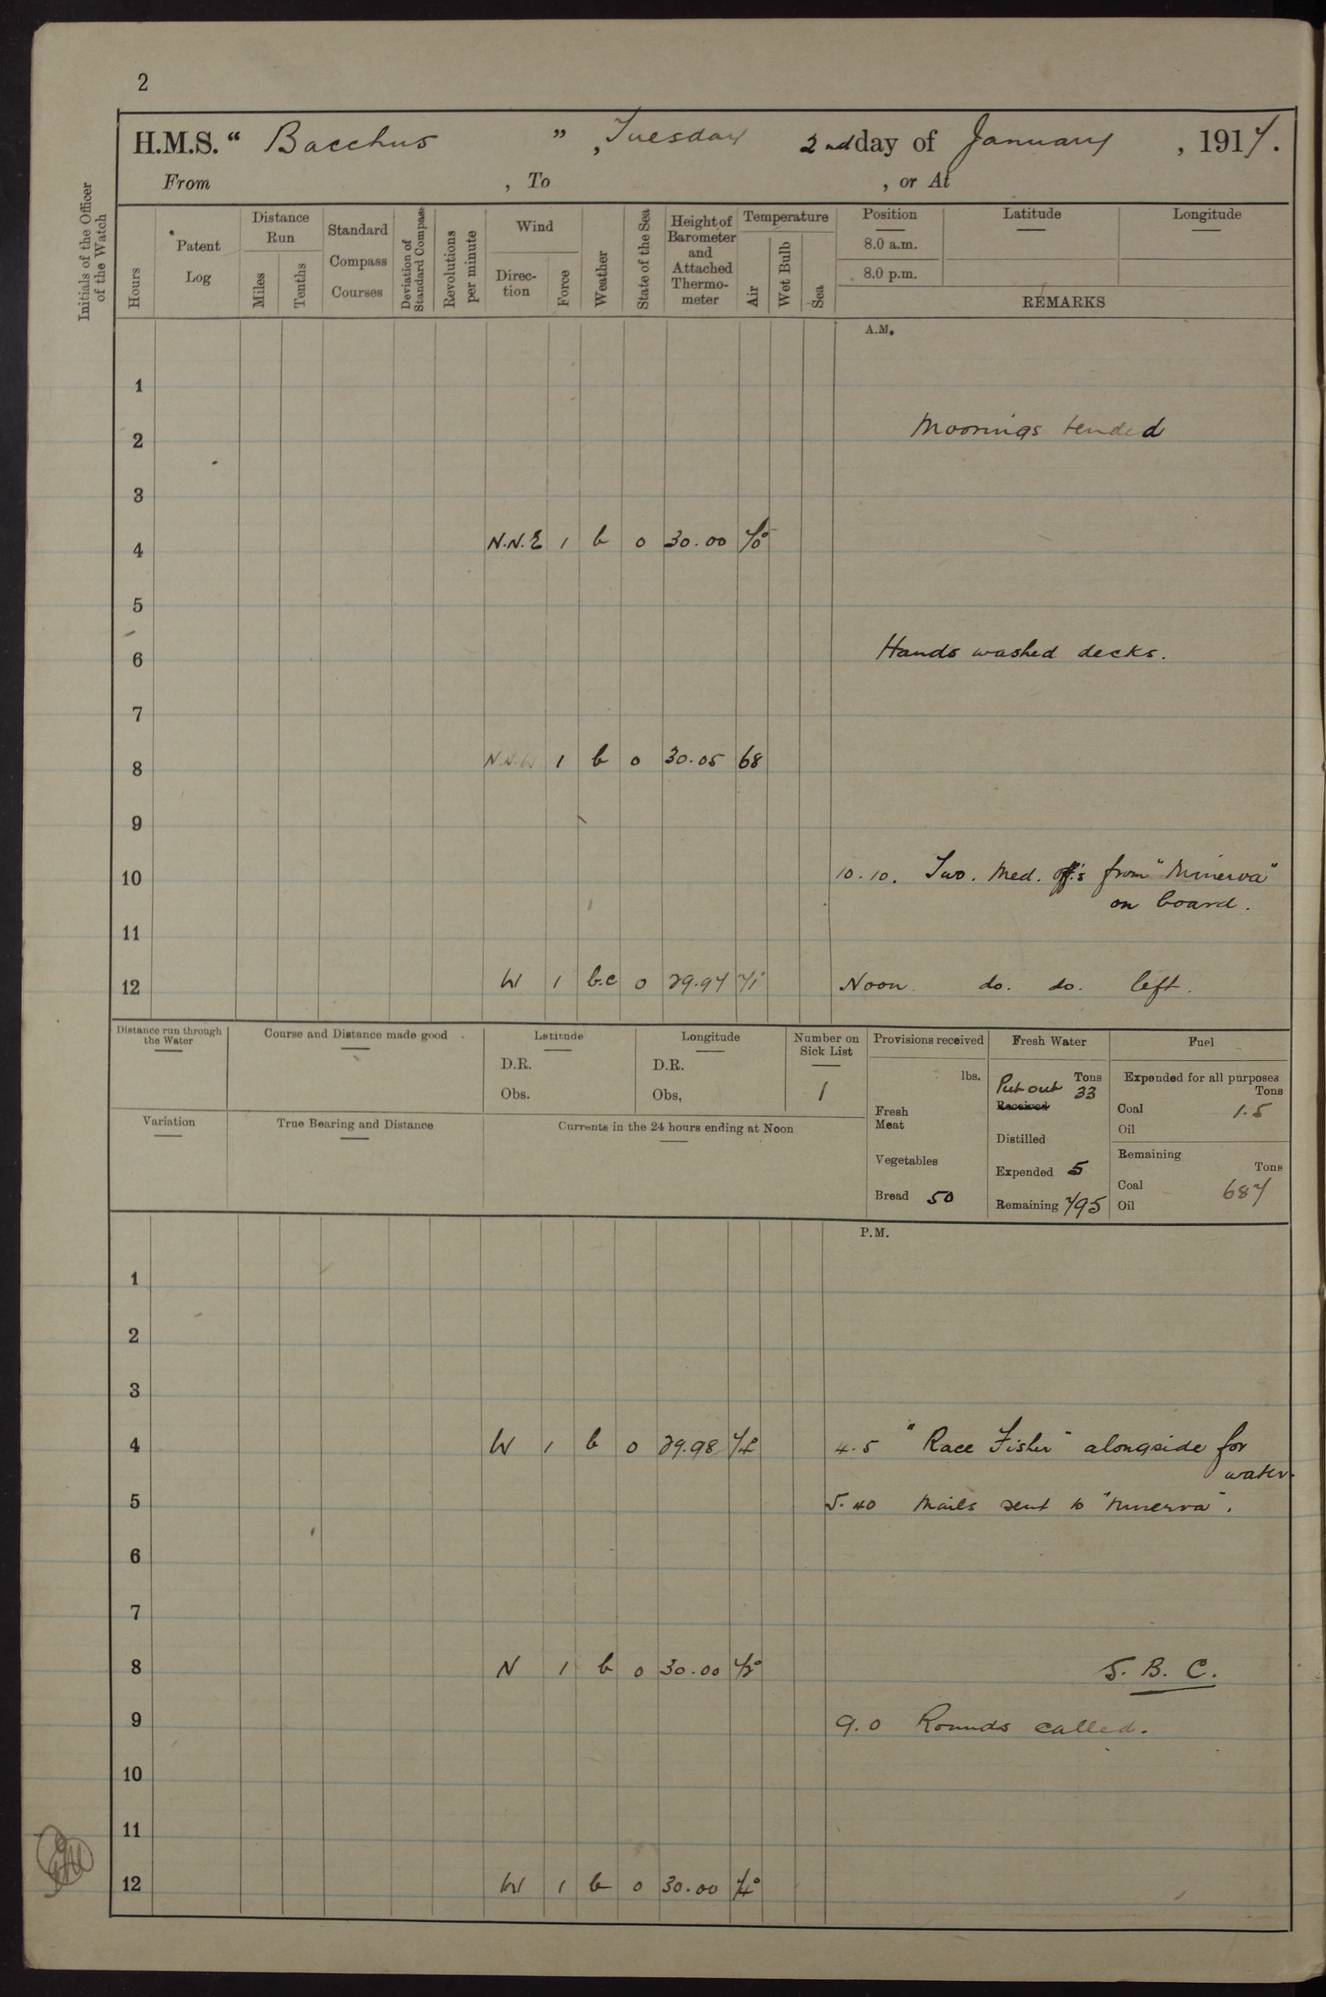 2
H.M.S. " Bacchus ", Tuesday 2nd day of January, 1917.
From , To , or At
Initials of the Officer of the Watch
Hours
Patent Log
Distance Run
Miles
Tenths
Standard Compass Courses
Deviation of Standard Compass
Revolutions per minute
Wind
Direction
Force
Weather
State of the Sea
Height of Barometer and Attached Thermometer
Temperature
Air
Wet Bulb
Sea
Position Latitude Longitude
8.0 a.m.
8.0 p.m.
REMARKS
A.M.
1
2 Moorings tended
3
4 N.N.E 1 b 0 30.00 70°
5
6 Hands washed decks.
7
8 N.N.W 1 b 0 30.05 68
9
10 10.10. Two. Med. Off's from "Minerva"
on board.
11
12 W 1 b.c 0 29.97 71° Noon do. do. left.
Distance run through the Water
Course and Distance made good
Latitude
D.R.
Obs.
Longitude
D.R.
Obs.
Number on Sick List
1
Variation
True Bearing and Distance
Currents in the 24 hours ending at Noon
Provisions received
lbs.
Fresh Meat
Vegetables
Bread 50
Fresh Water
Tons
Put out 33
Received
Distilled
Expended 5
Remaining 795
Fuel
Expended for all purposes
Tons
Coal 1.5
Oil
Remaining
Tons
Coal 687
Oil
P.M.
1
2
3
4 W 1 b 0 29.98 74° 4.5 "Race Fisher" alongside for
water.
5 5.40 Mails sent to "Minerva".
6
7
8 N 1 b 0 30.00 72° S. B. C.
9 9.0 Rounds called.
10
11
12 W 1 b 0 30.00 74°